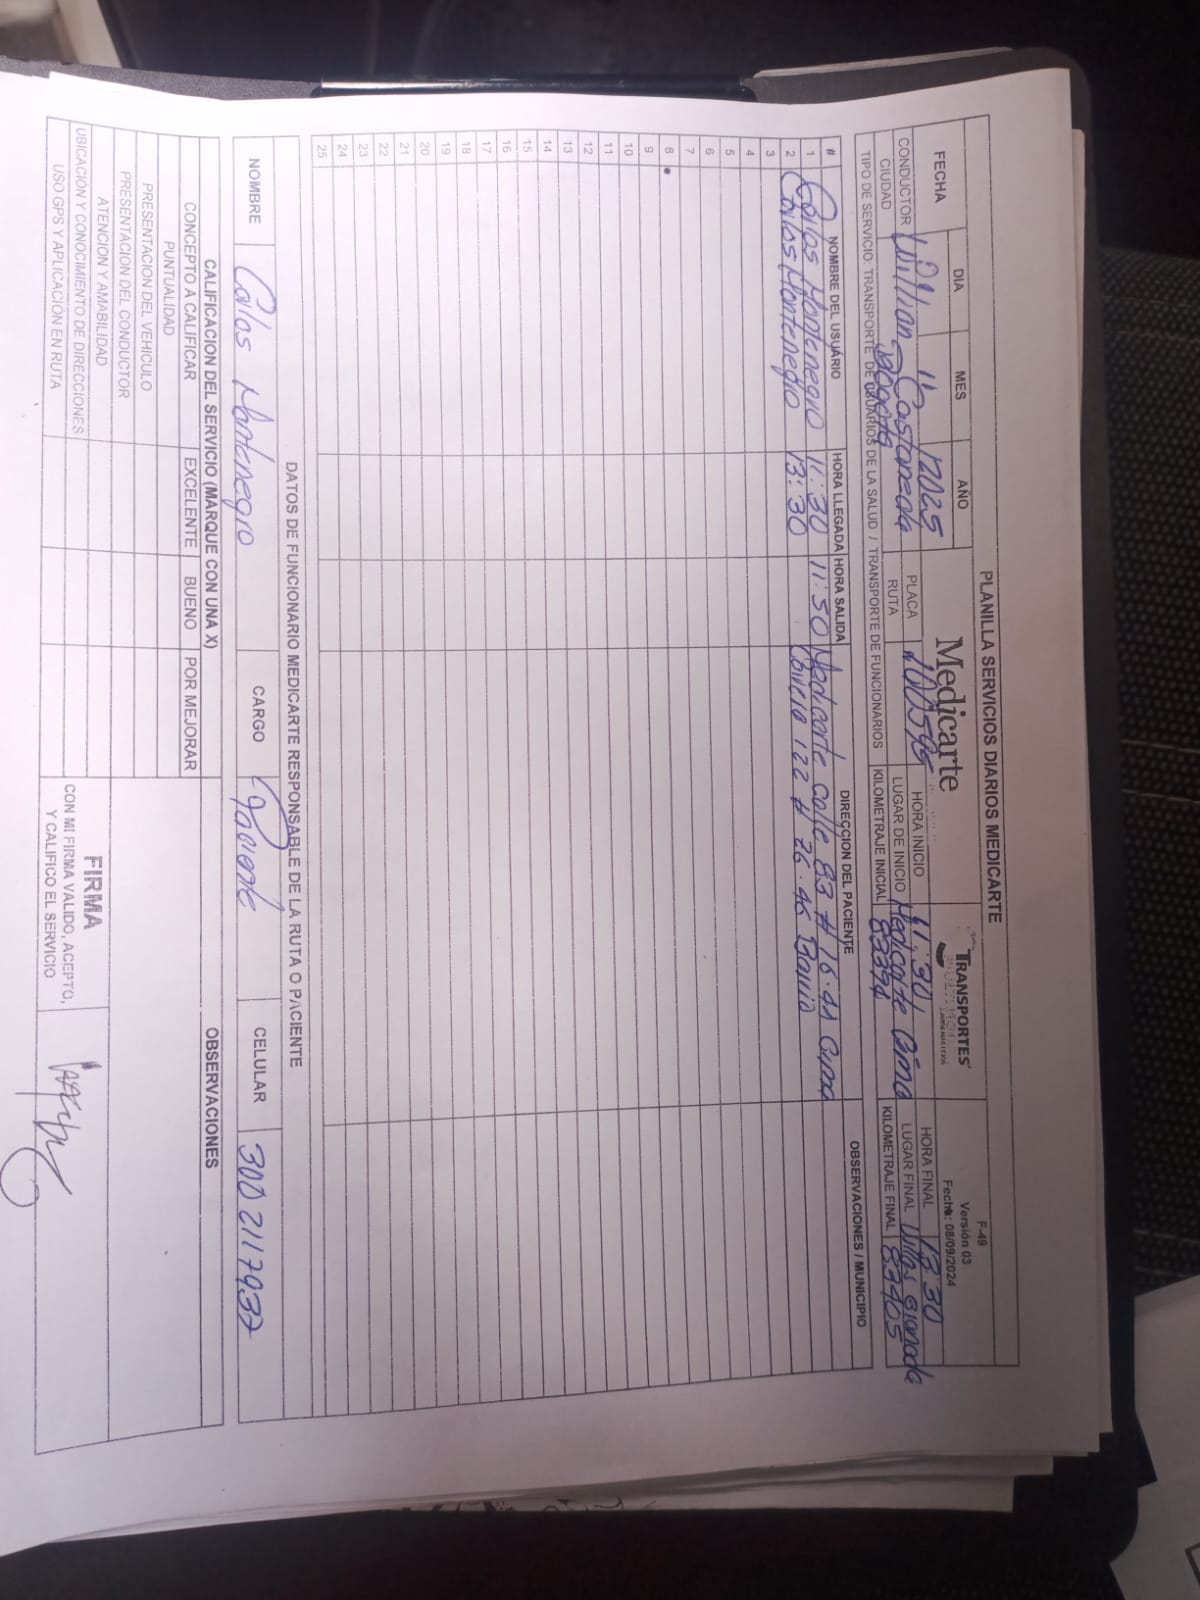 PLANILLA SERVICIOS DIARIOS MEDICARTE
F-49
Versión 03
Fecha: 08/09/2024
FECHA DIA MES AÑO
11 2025
Medicarte
TRANSPORTES
HORA INICIO 11:30
HORA FINAL 13:30
CONDUCTOR Willian Castaneda
PLACA
LUGAR DE INICIO Medicarte
LUGAR FINAL Villas granada
CIUDAD Bogota
RUTA
KILOMETRAJE INICIAL 83394
KILOMETRAJE FINAL 83405
TIPO DE SERVICIO: TRANSPORTE DE USUARIOS DE LA SALUD / TRANSPORTE DE FUNCIONARIOS
# NOMBRE DEL USUARIO HORA LLEGADA HORA SALIDA DIRECCION DEL PACIENTE OBSERVACIONES / MUNICIPIO
1 Carlos Montenegro 11:30 11:50 Medicarte calle 83 # 16-41
2 Carlos Montenegro 13:30 Carrera 122 # 26-46 Barrio
3
4
5
6
7
8
9
10
11
12
13
14
15
16
17
18
19
20
21
22
23
24
25
DATOS DE FUNCIONARIO MEDICARTE RESPONSABLE DE LA RUTA O PACIENTE
NOMBRE Carlos Montenegro CARGO Paciente CELULAR 300 2117937
CALIFICACION DEL SERVICIO (MARQUE CON UNA X) OBSERVACIONES
CONCEPTO A CALIFICAR EXCELENTE BUENO POR MEJORAR
PUNTUALIDAD
PRESENTACION DEL VEHICULO
PRESENTACION DEL CONDUCTOR
ATENCION Y AMABILIDAD
UBICACIÓN Y CONOCIMIENTO DE DIRECCIONES
USO GPS Y APLICACIÓN EN RUTA
FIRMA
CON MI FIRMA VALIDO, ACEPTO,
Y CALIFICO EL SERVICIO